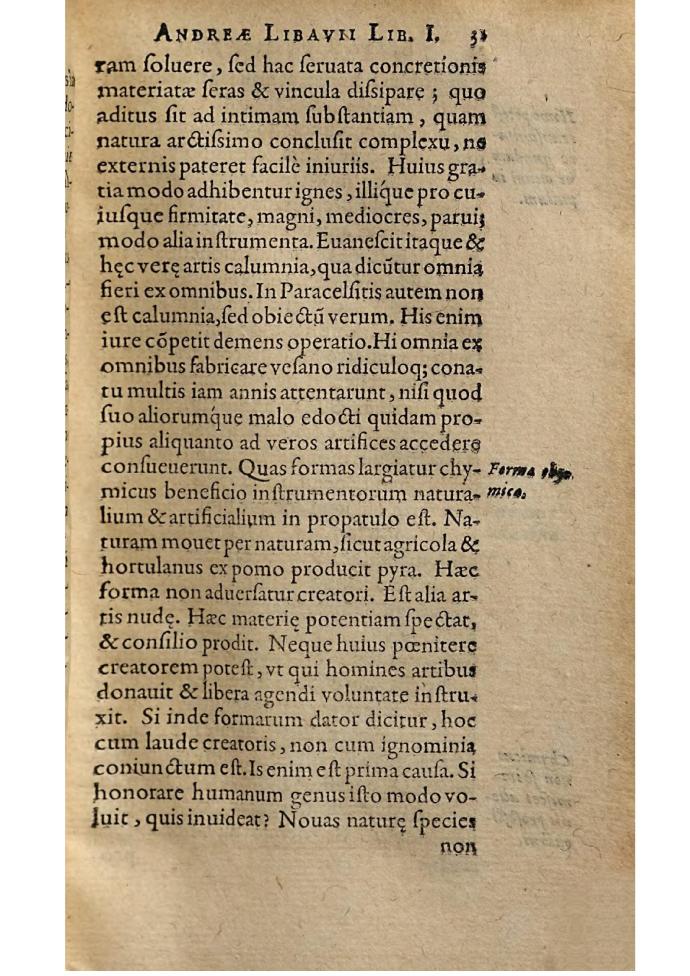 ANDREÆ LIBAVII LIB. I. 31
ram ſoluere, ſed hac ſeruata concretionis
materiatæ ſeras & vincula diſsipare ; quo
aditus ſit ad intimam ſubſtantiam, quam
natura arctiſsimo concluſit complexu, ne
externis pateret facilè iniuriis. Huius gra-
tia modo adhibentur ignes, illíque pro cu-
iuſque firmitate, magni, mediocres, parui;
modo alia inſtrumenta. Euaneſcit itaque &
hęc verę artis calumnia, qua dicūtur omnia
fieri ex omnibus. In Paracelſitis autem non
eſt calumnia, ſed obiectū verum. His enim
iure cõpetit demens operatio. Hi omnia ex
omnibus fabricare veſano ridiculoq; cona-
tu multis iam annis attentarunt, niſi quod
ſuo aliorumque malo edocti quidam pro-
pius aliquanto ad veros artifices accedere
conſueuerunt. Quas formas largiatur chy-
micus beneficio inſtrumentorum natura-
lium & artificialium in propatulo eſt. Na-
turam mouet per naturam, ſicut agricola &
hortulanus ex pomo producit pyra. Hæc
forma non aduerſatur creatori. Eſt alia ar-
tis nudę. Hæc materię potentiam ſpectat,
& conſilio prodit. Neque huius pœnitere
creatorem poteſt, vt qui homines artibus
donauit & libera agendi voluntate inſtru-
xit. Si inde formarum dator dicitur, hoc
cum laude creatoris, non cum ignominia
coniunctum eſt. Is enim eſt prima cauſa. Si
honorare humanum genus iſto modo vo-
luit, quis inuideat? Nouas naturę ſpecies
non
Forma
mica.